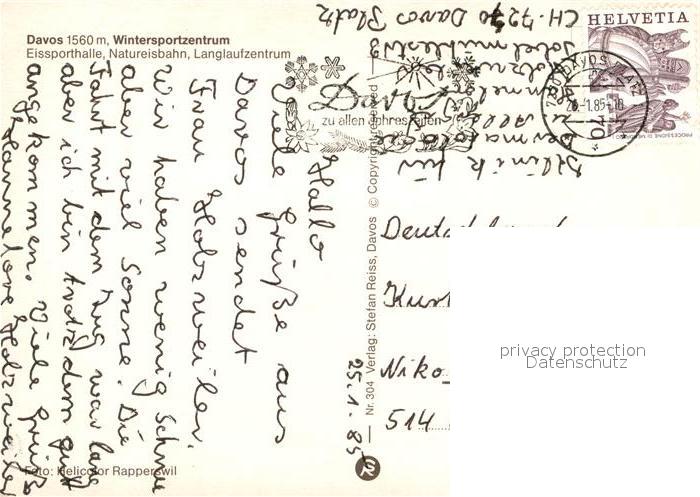 Davos 1560 m, Wintersportzentrum
Eissporthalle, Natureisbahn, Langlaufzentrum
Hallo
Viele Grüße aus
Davos sendet
Frau Holzweiler.
Wir haben wenig Schnee
aber viel Sonne. Die
Fahrt mit dem Zug war lang
aber ich bin trotzdem gut
angekommen. Viele Grüße
Hannelore Holzweiler
25.1.85
Foto: Helicolor Rapperswil
Davos
zu allen Jahreszeiten
Nr. 304 Verlag: Stefan Reiss, Davos © Copyright reserved
Klinik für
Dermatologie
CH-7270 Davos Platz
HELVETIA
Deutschland
Kurt
Niko
514
privacy protection
Datenschutz